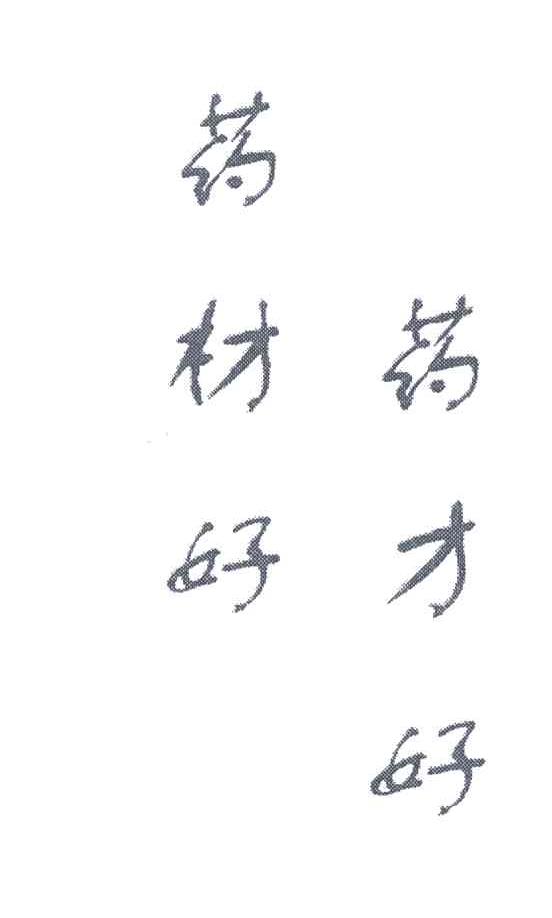 药材好
药才好